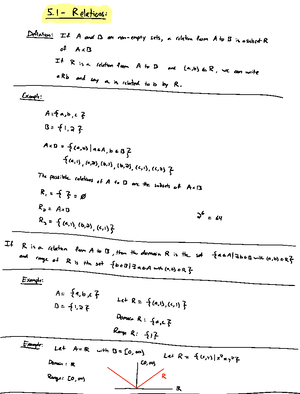 5.1 - Relations:
Definition: If A and B are non-empty sets, a relation from A to B is a subset R
of A×B
If R is a relation from A to B and (a,b) ∈ R, we can write
aRb and say a is related to b by R.
Example:
A = {a,b,c}
B = {1,2}
A×B = {(a,b) | a∈A, b∈B}
{(a,1), (a,2), (b,1), (b,2), (c,1), (c,2)}
The possible relations of A to B are the subsets of A×B
R₁ = { } = ∅
R₂ = A×B
R₃ = {(a,1), (b,2), (c,1)} 2⁶ = 64
If R is a relation from A to B, then the domain R is the set {a∈A | ∃b∈B with (a,b)∈R}
and range of R is the set {b∈B | ∃a∈A with (a,b)∈R}
Example:
A = {a,b,c} Let R = {(a,1), (c,1)}
B = {1,2} Domain R: {a,c}
Range R: {1}
Example: Let A = ℝ with B = [0,∞) Let R =
Domain: ℝ [0,∞)
Range: [0,∞) R
ℝ